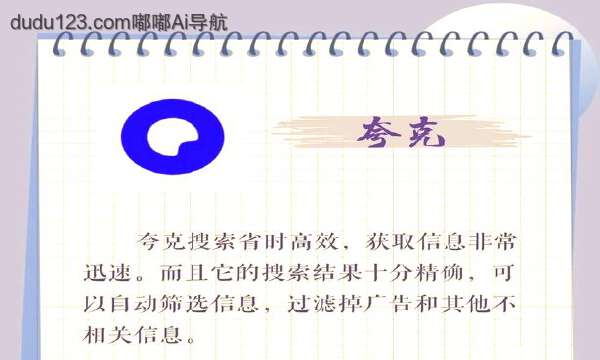 dudu123.com嘟嘟Ai导航
夸克
夸克搜索省时高效，获取信息非常
迅速。而且它的搜索结果十分精确，可
以自动筛选信息，过滤掉广告和其他不
相关信息。